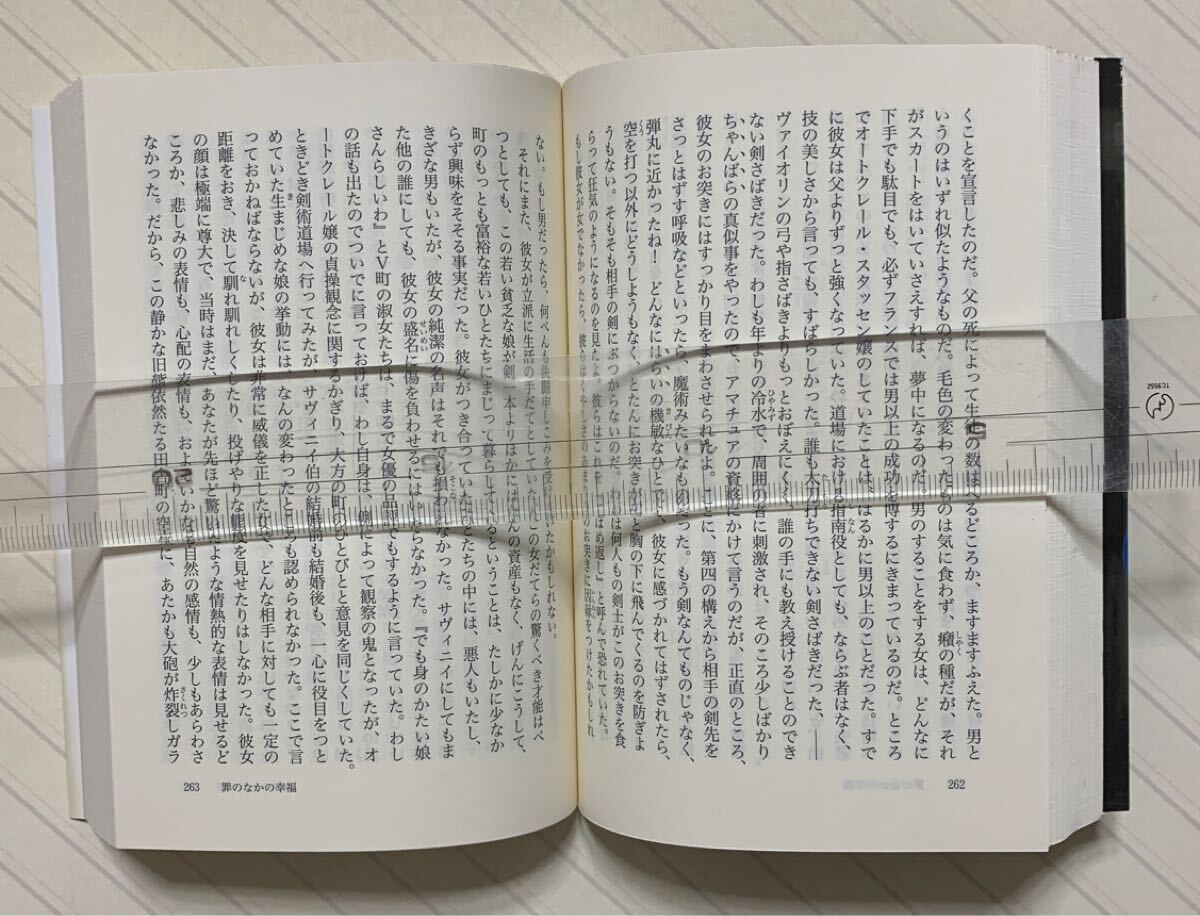 くことを宣言したのだ。父の死によって生徒の数はへるどころか、ますますふえた。男と
いうのはいずれ似たようなものだ。毛色の変わったものは気に食わず、癪の種だが、それ
がスカートをはいていさえすれば、夢中になるのだ。男のすることをする女は、どんなに
下手でも駄目でも、必ずフランスでは男以上の成功を博するにきまっているのだ。ところ
でオートクレール・スタッセン嬢のしていたことは、はるかに男以上のことだった。すで
に彼女は父よりずっと強くなっていた。道場における指南役としても、ならぶ者はなく、
技の美しさから言っても、すばらしかった。誰も太刀打ちできない剣さばきだった、――
ヴァイオリンの弓や指さばきよりもっとおぼえにくく、誰の手にも教え授けることのでき
ない剣さばきだった。わしも年よりの冷水で、周囲の者に刺激され、そのころ少しばかり
ちゃんばらの真似事をやったので、アマチュアの資格にかけて言うのだが、正直のところ、
彼女のお突きにはすっかり目をまわさせられたよ。ことに、第四の構えから相手の剣先を
さっとはずす呼吸などといったら、魔術みたいなものだった。もう剣なんてものじゃなく、
弾丸に近かったね！ どんなにはらいの機敏なひとでも、彼女に感づかれてはずされたら、
空を打つ以外にどうしようもなく、とたんにお突きが胸の下に飛んでくるのを防ぎよ
うもない。そもそも相手の剣にぶつからないのだ。わしは何人もの剣士がこのお突きを食
らって狂気のようになるのを見たよ。彼らはこれを『つばめ返し』と呼んで恐れていた。
もし彼女が女でなかったら、彼らはくやしさのあまりこのお突きに因縁をつけたかもしれ
262
ない。もし男だったら、何べんも決闘申しこみを受けていたかもしれない。
それにまた、彼女が立派に生活の手だてとしていたこの女だてらの驚くべき才能はべ
つとしても、この若い貧乏な娘が剣一本よりほかになんの資産もなく、げんにこうして、
町のもっとも富裕な若いひとたちにまじって暮らしているということは、たしかに少なか
らず興味をそそる事実だった。彼女がつき合っていたひとたちの中には、悪人もいたし、
きざな男もいたが、彼女の純潔の名声はそれでも損われなかった。サヴィニイにしてもま
た他の誰にしても、彼女の盛名に傷を負わせるにはいたらなかった。『でも身のかたい娘
さんらしいわ』とV町の淑女たちは、まるで女優の品評でもするように言っていた。わし
の話も出たのでついでに言っておけば、わし自身は、例によって観察の鬼となったが、オ
ートクレール嬢の貞操観念に関するかぎり、大方の町のひとびとと意見を同じくしていた。
ときどき剣術道場へ行ってみたが、サヴィニイ伯の結婚前も結婚後も、一心に役目をつと
めていた生まじめな娘の挙動には、なんの変わったところも認められなかった。ここで言
っておかねばならないが、彼女は非常に威儀を正した女で、どんな相手に対しても一定の
距離をおき、決して馴れ馴れしくしたり、投げやりな態度を見せたりはしなかった。彼女
の顔は極端に尊大で、当時はまだ、あなたが先ほど驚いたような情熱的な表情は見せるど
ころか、悲しみの表情も、心配の表情も、およそいかなる自然の感情も、少しもあらわさ
なかった。だから、この静かな旧態依然たる田舎町の空気に、あたかも大砲が炸裂しガラ
263 罪のなかの幸福
TC.9552